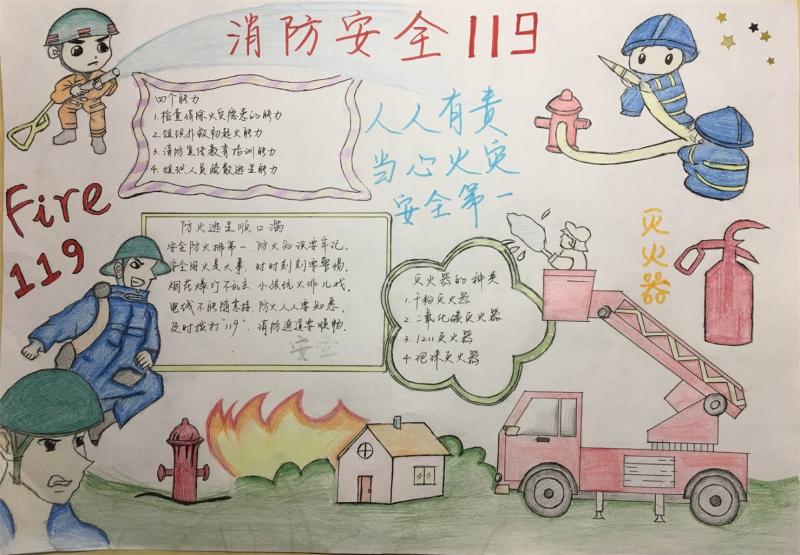 消防安全119
四个能力
1.检查消除火灾隐患的能力
2.组织扑救初起火能力
3.消防宣传教育培训能力
4.组织人员疏散逃生能力
人人有责
当心火灾
安全第一
Fire
119
防火逃生顺口溜
安全防火排第一,防火知识要牢记,
安全用火是大事,时时刻刻要警惕,
烟花爆竹不乱丢,小孩玩火非儿戏,
电线不能随意接,防火人人要知悉,
及时拨打"119",消防通道要顺畅.
安全
灭火器的种类
1.干粉灭火器
2.二氧化碳灭火器
3.1211灭火器
4.泡沫灭火器
灭火器